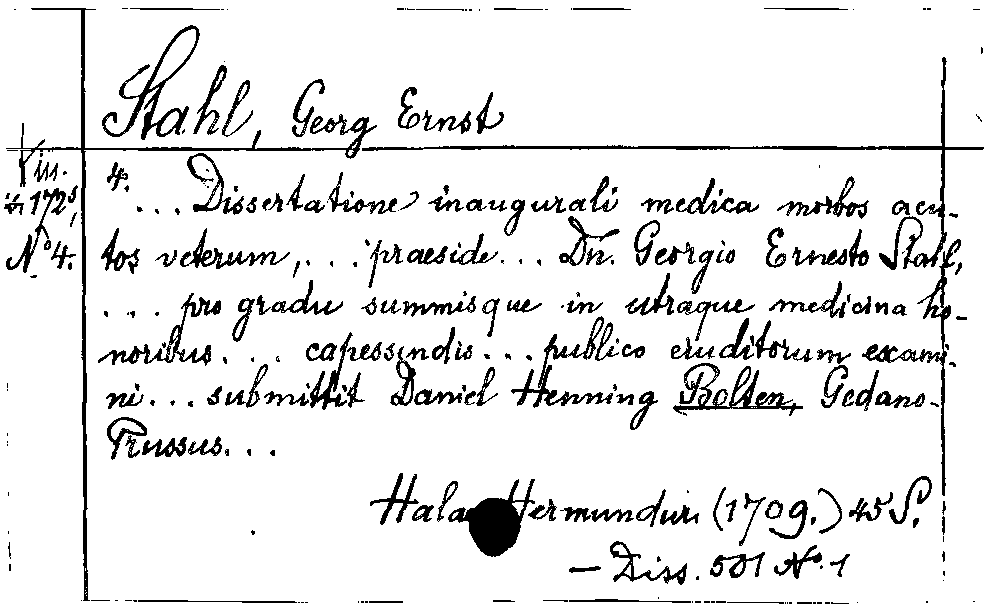 Stahl, Georg Ernst
in 172
No 4.
4o.
... Dissertatione inaugurali medica morbos acu-
tos veterum, ... praeside ... Dn. Georgio Ernesto Stahl,
... pro gradu summisque in utraque medicina ho-
noribus ... capessendis ... publico eruditorum exami-
ni ... submittit Daniel Henning Bolten, Gedano-
Prussus ...
Halae Hermundur. (1709.) 45 S.
— Diss. 501 No. 1